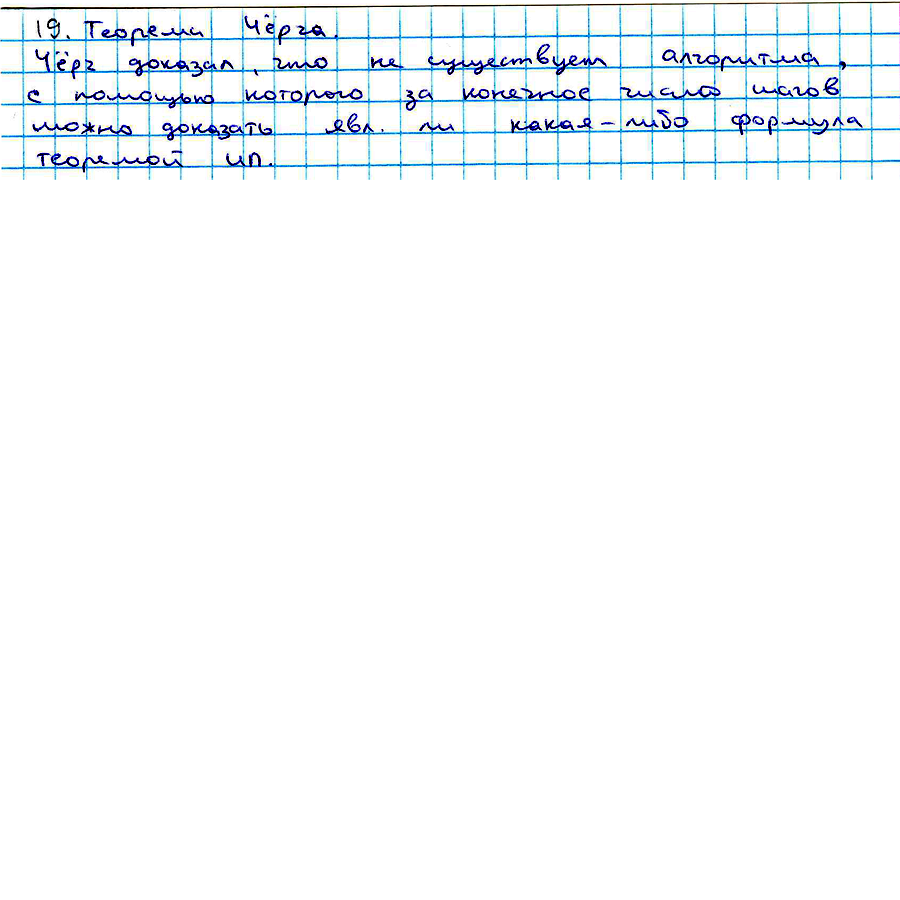 19. Теорема Чёрча.
Чёрч доказал, что не существует алгоритма,
с помощью которого за конечное число шагов
можно доказать явл. ли какая-либо формула
теоремой ИП.